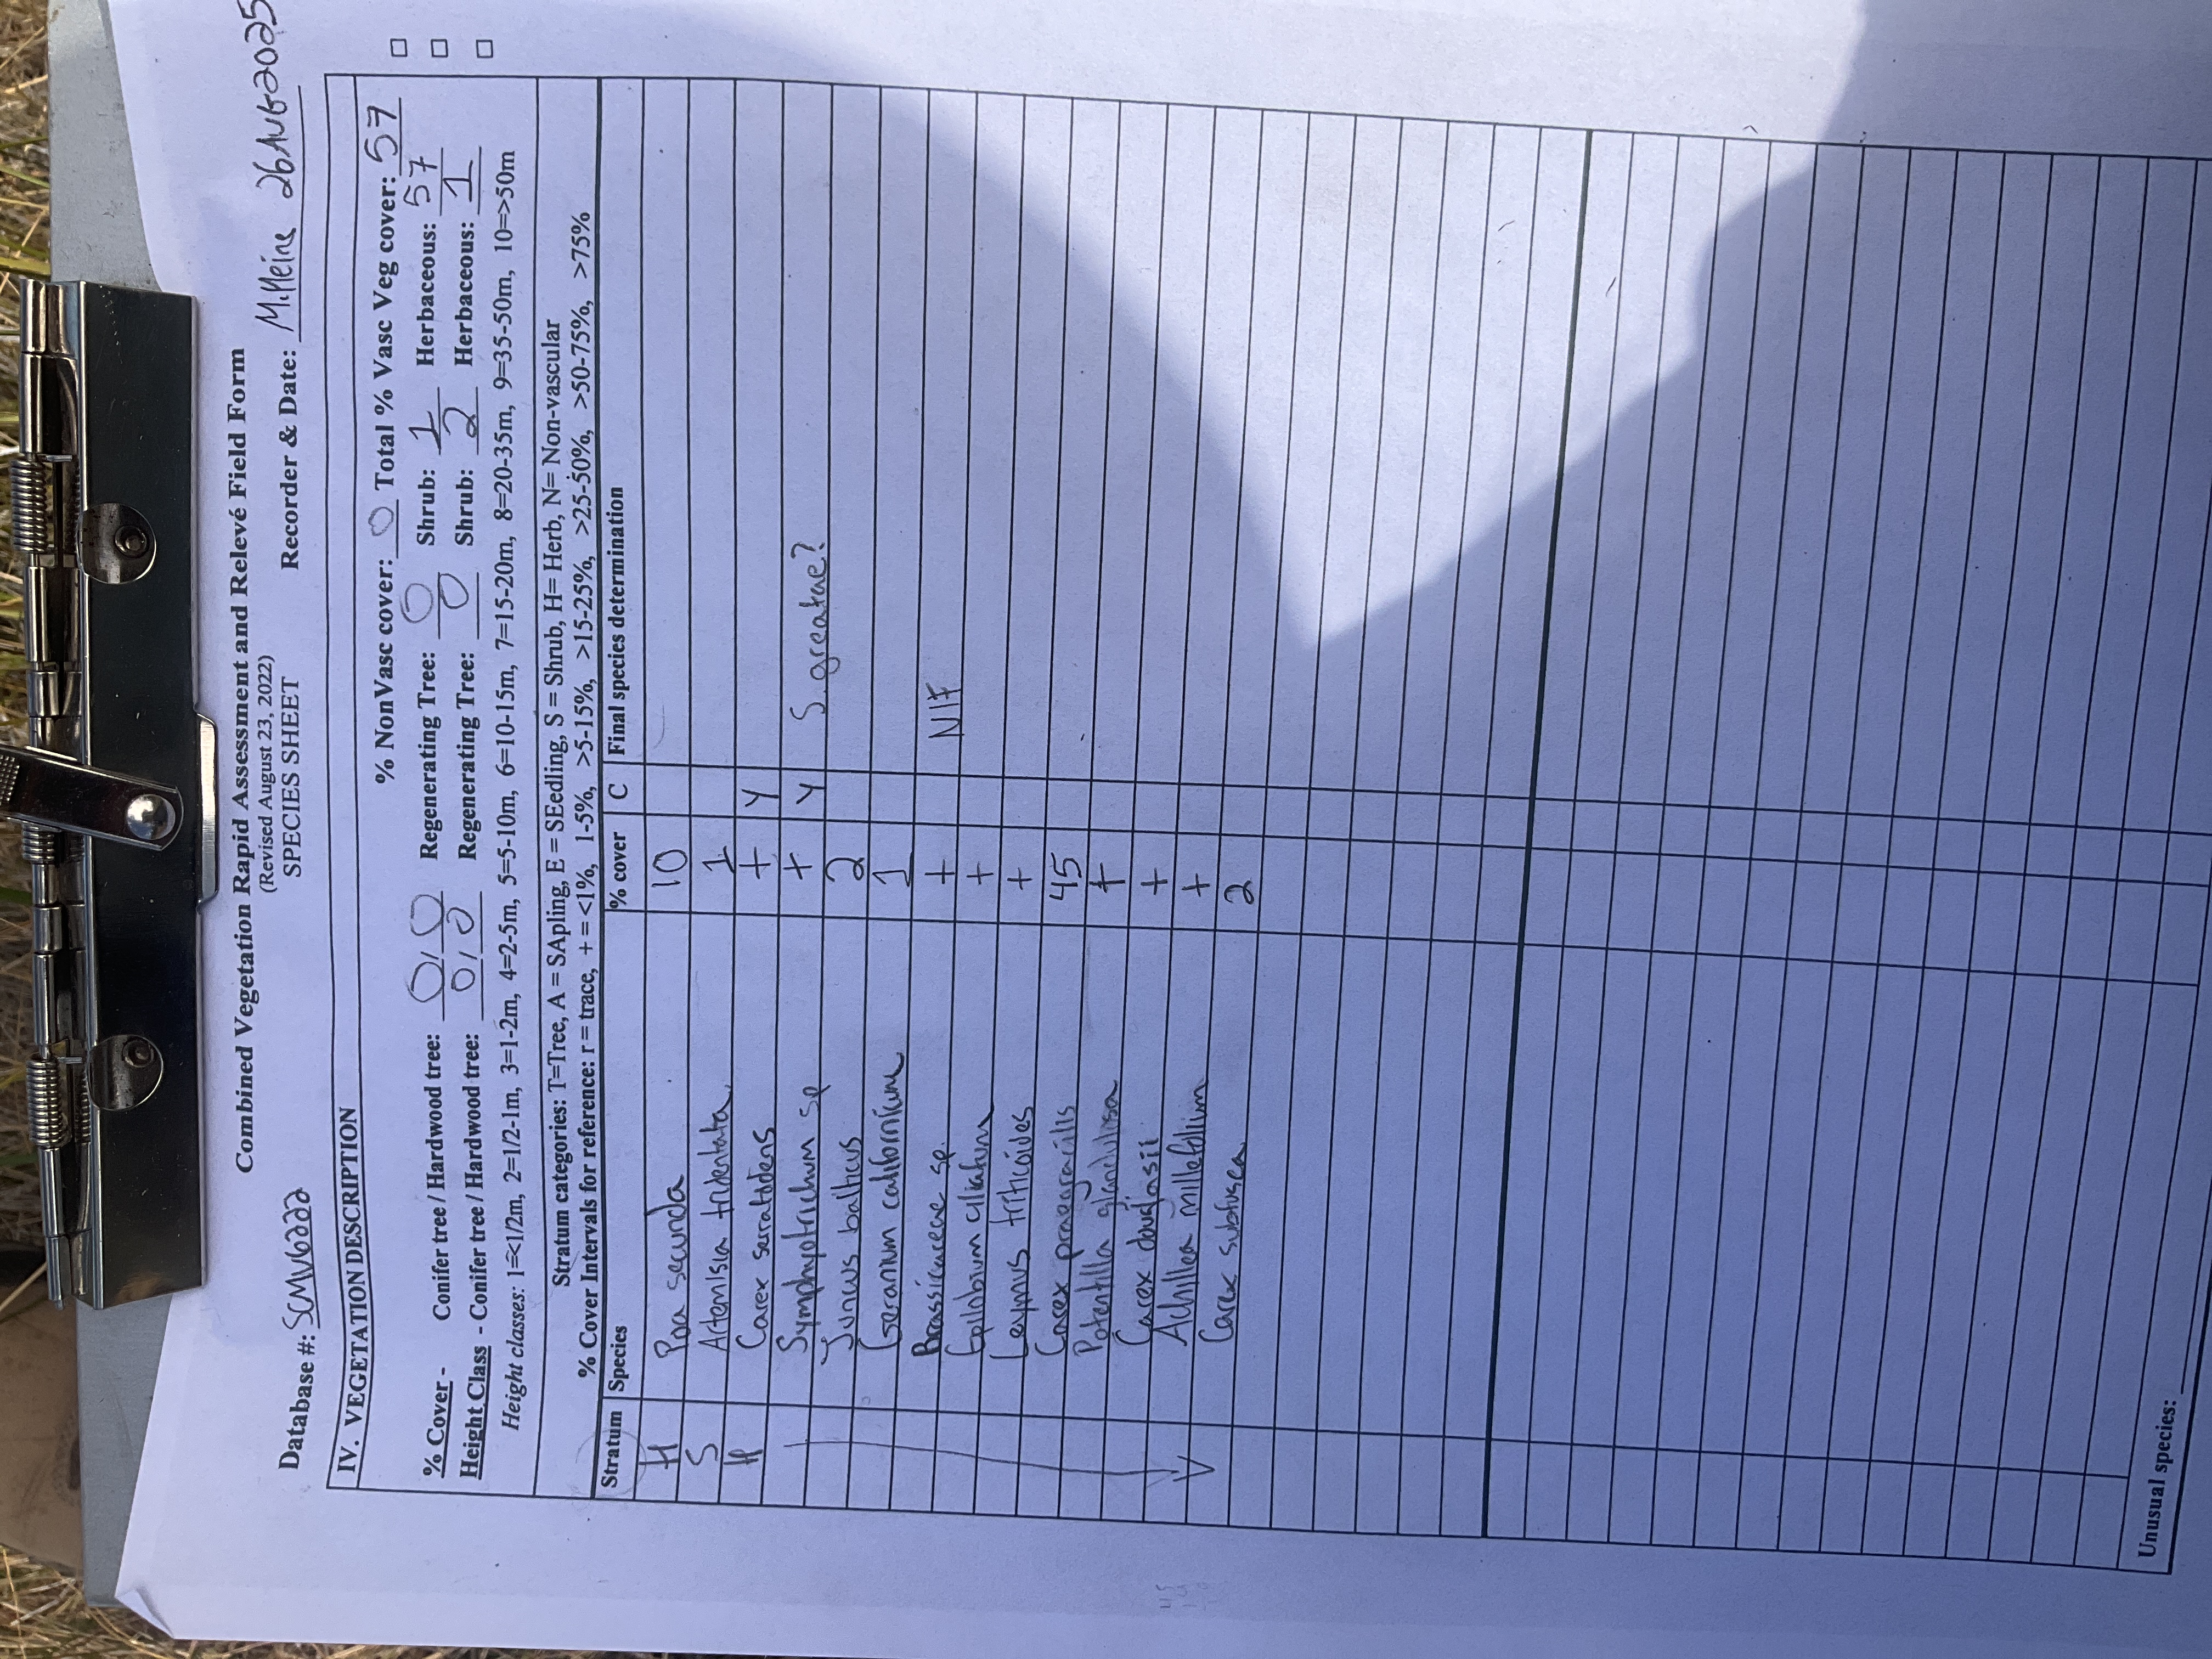 Combined Vegetation Rapid Assessment and Relevé Field Form
(Revised August 23, 2022)
SPECIES SHEET
Database #: SCMV6222 Recorder & Date: M. Heine 26AUG2025
IV. VEGETATION DESCRIPTION
% NonVasc cover: 0 Total % Vasc Veg cover: 57
% Cover - Conifer tree / Hardwood tree: 0/0 Regenerating Tree: 0 Shrub: 1 Herbaceous: 57
Height Class - Conifer tree / Hardwood tree: 0/0 Regenerating Tree: 0 Shrub: 2 Herbaceous: 1
Height classes: 1=<1/2m, 2=1/2-1m, 3=1-2m, 4=2-5m, 5=5-10m, 6=10-15m, 7=15-20m, 8=20-35m, 9=35-50m, 10=>50m
Stratum categories: T=Tree, A = SApling, E = SEedling, S = Shrub, H= Herb, N= Non-vascular
% Cover Intervals for reference: r = trace, + = <1%, 1-5%, >5-15%, >15-25%, >25-50%, >50-75%, >75%
Stratum Species % cover C Final species determination
H Poa secunda 10
S Artemisia tridentata 1
H Carex serratodens + Y
Symphyotrichum sp + Y S. greatae?
Juncus balticus 2
Geranium californicum 1
Brassicaceae sp. + NIF
Epilobium ciliatum +
Leymus triticoides +
Carex praegracilis 45
Potentilla glandulosa +
Carex douglasii +
Achillea millefolium +
Carex subfusca 2
Unusual species: